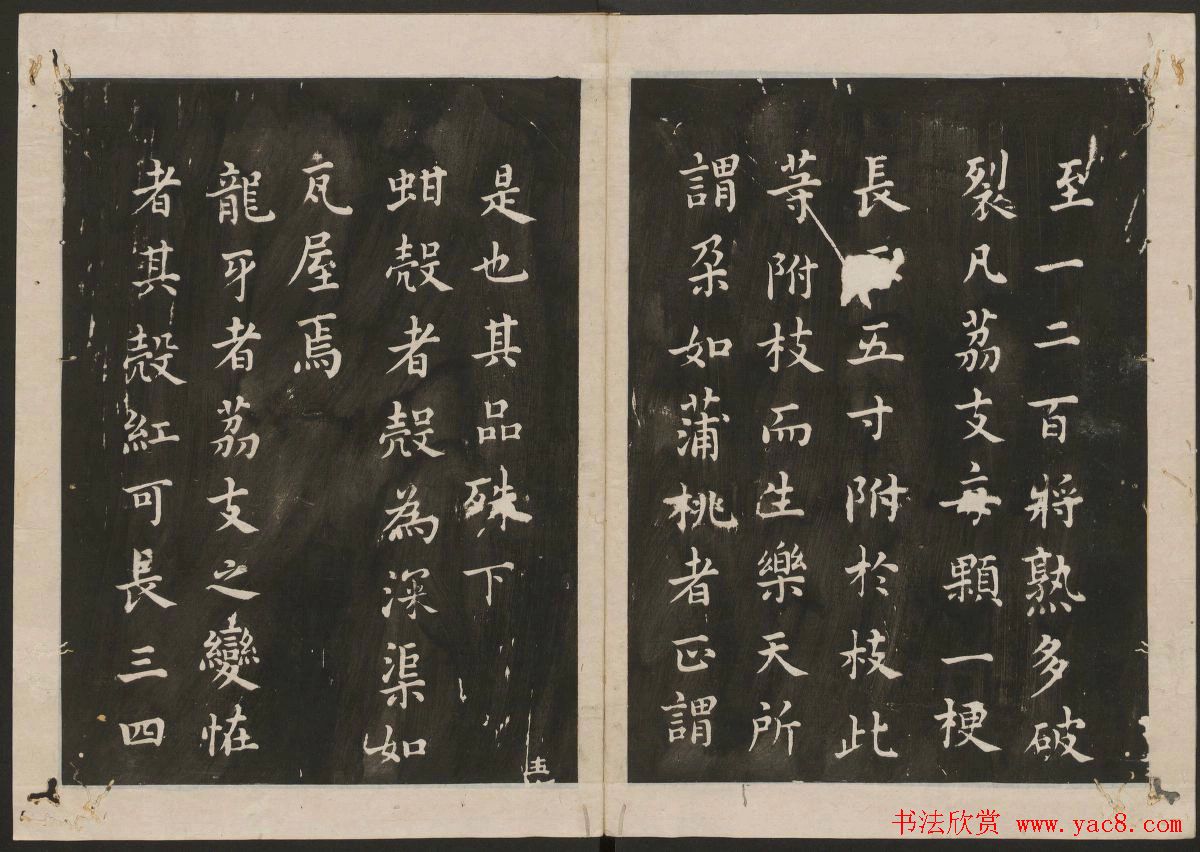 至一二百將熟多破
裂凡荔支每顆一梗
長五寸附於枝此
等附枝而生樂天所
謂朵如蒲桃者正謂
是也其品殊下
蚶殼者殼為深渠如
瓦屋焉
龍牙者荔支之變怪
者其殼紅可長三四
书法欣赏 www.yac8.com